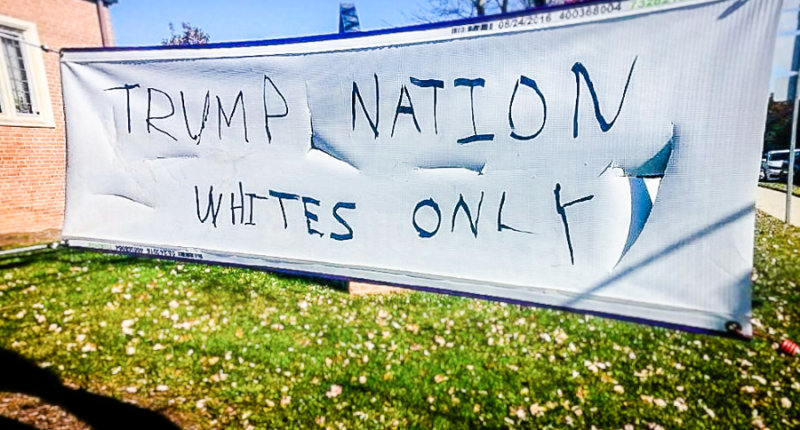 08/24/2016 400368004
TRUMP NATION
WHITES ONLY